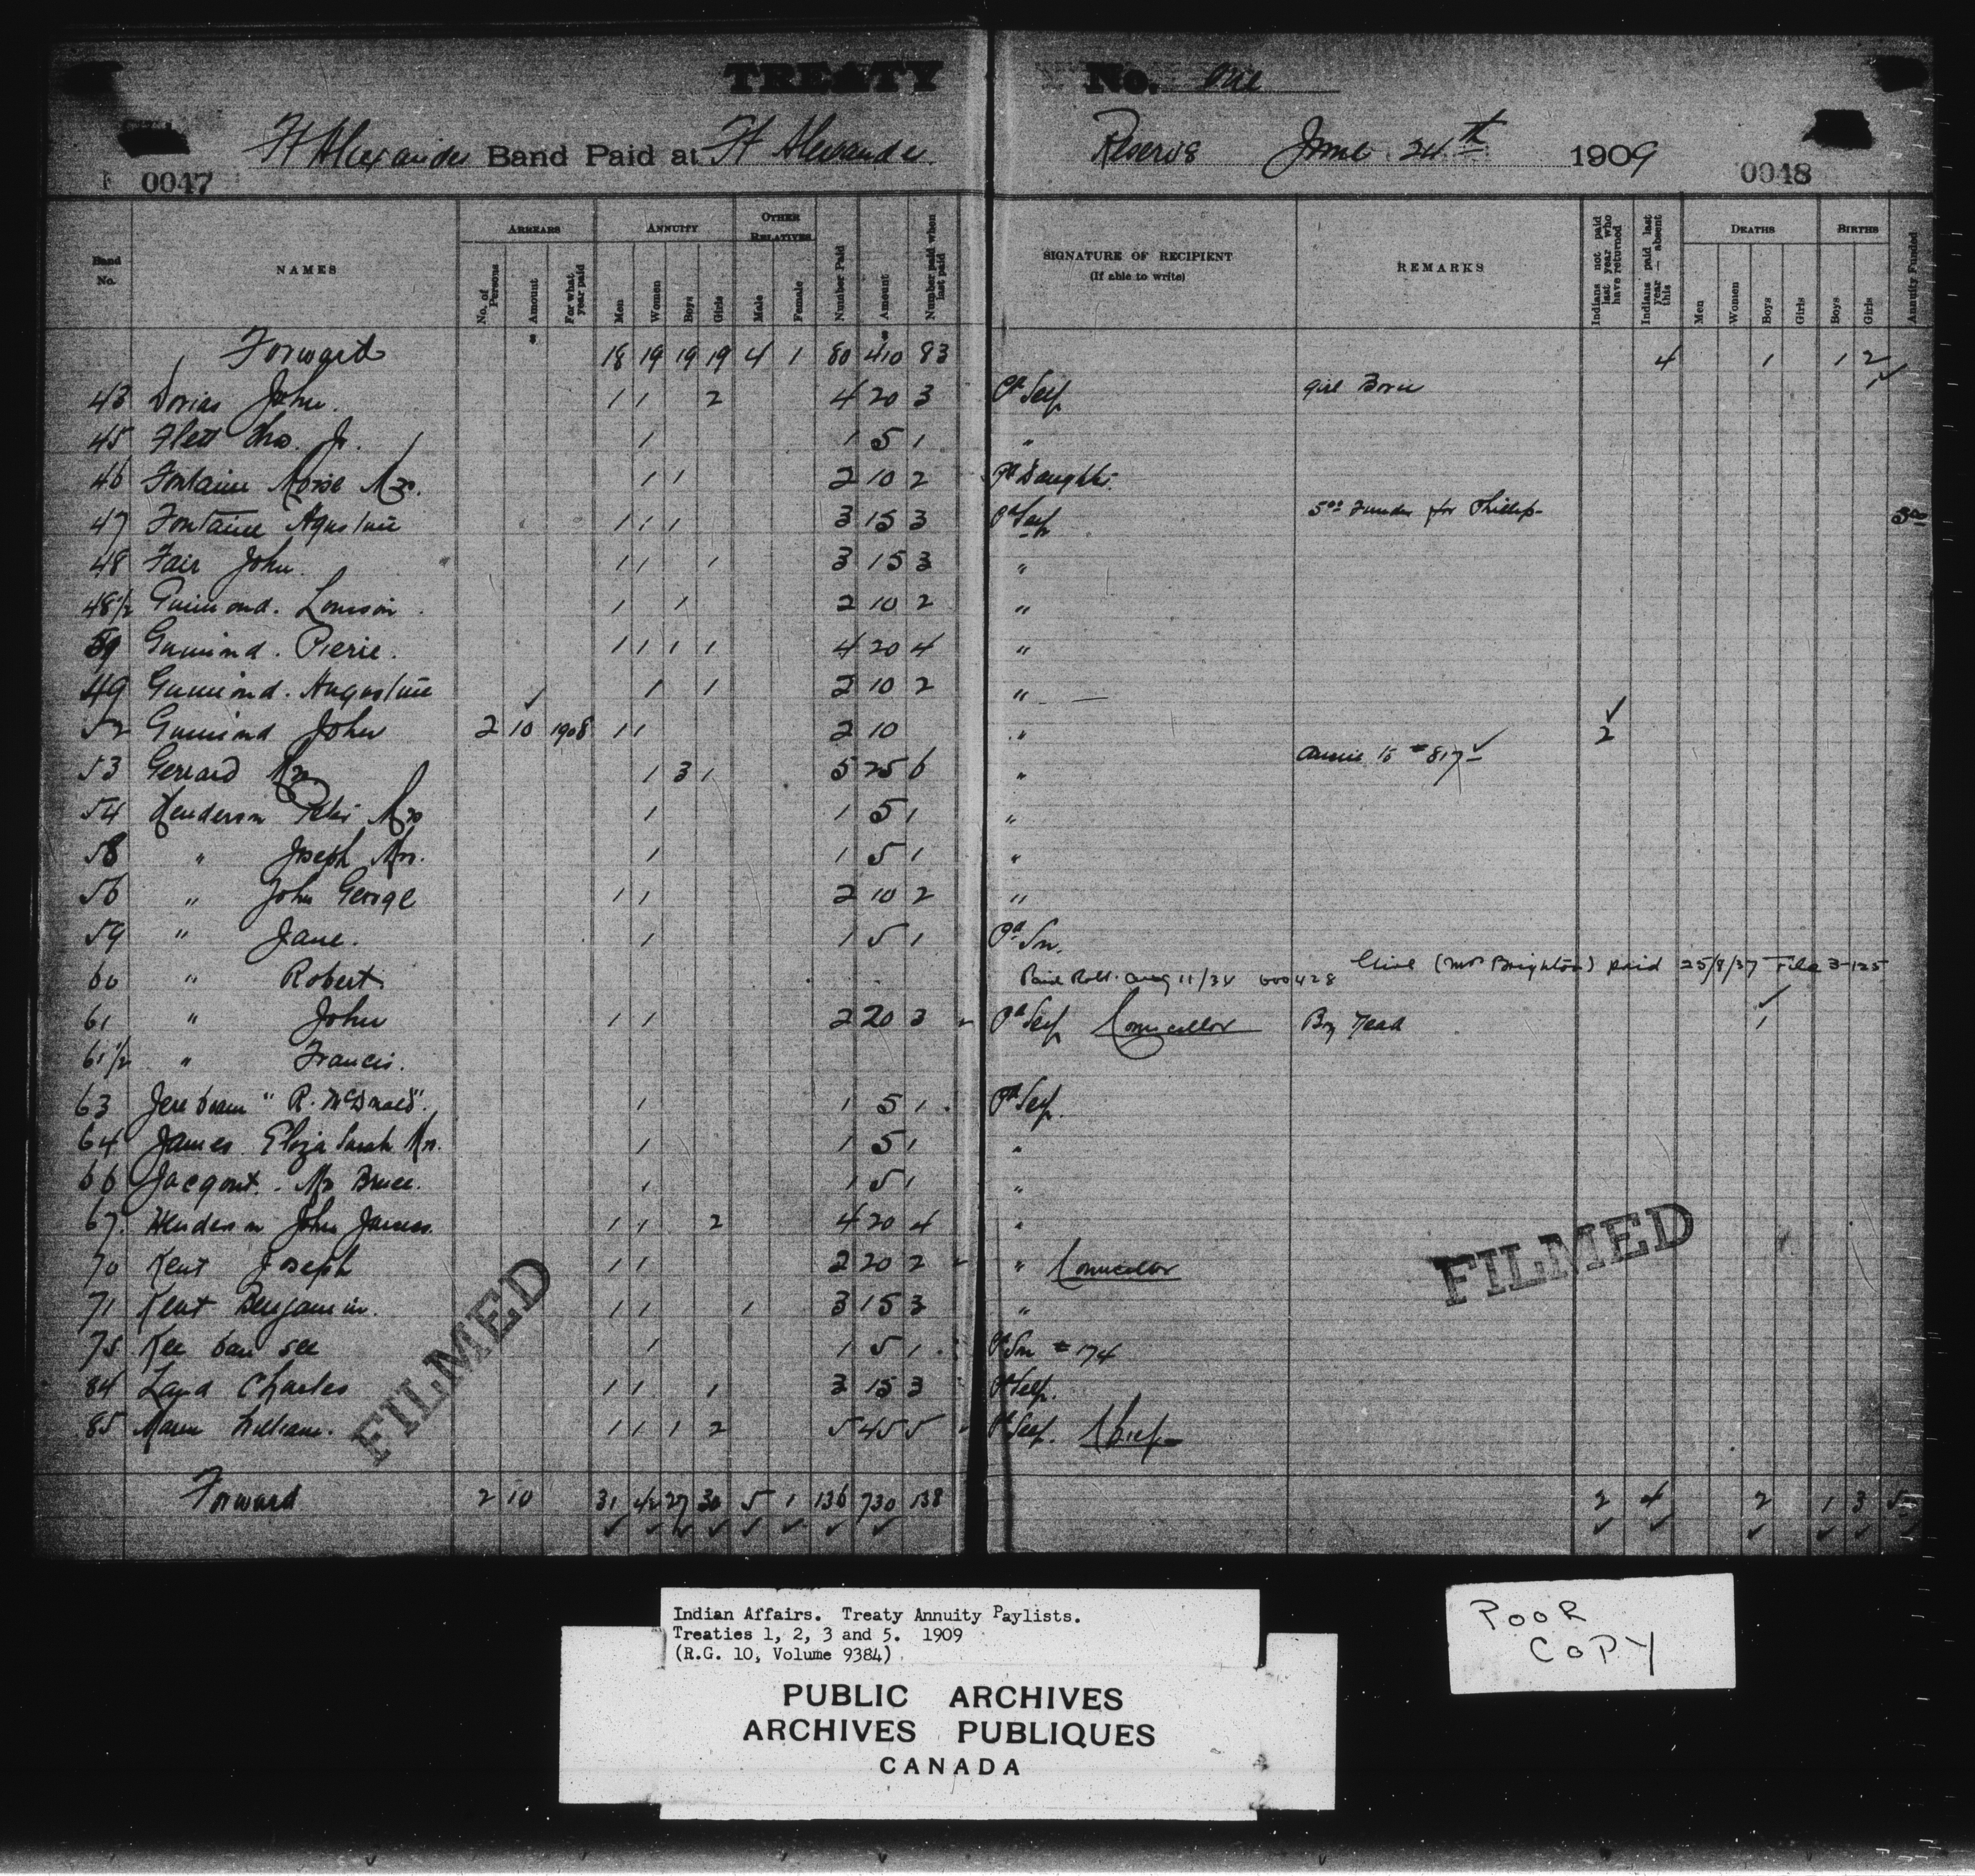 TREATY No. One
Ft Alexander Band Paid at Ft Alexander Reserve June 24th 1909
0047 0048
Band No. NAMES ARREARS No. of Persons Amount For what year paid ANNUITY Men Women Boys Girls OTHER RELATIVES Male Female Number Paid Amount Number paid when last paid SIGNATURE OF RECIPIENT (If able to write) REMARKS Indians not paid last year who have returned Indians paid last year — absent this DEATHS Men Women Boys Girls BIRTHS Boys Girls Annuity Funded
Forward 18 19 19 19 4 1 80 410 83 4 1 1 2
43 Dorias John. 1 1 2 4 20 3 Pd Self Girl Born 1 ✓
45 Flett Thos. Jr. 1 1 5 1 "
46 Fontaine Moise Mrs. 1 1 2 10 2 Pd Daughter.
47 Fontaine Agustine 1 1 1 3 15 3 Pd Self 5.00 Funded for Phillip 5.00
48 Fair John. 1 1 1 3 15 3 "
48 1/2 Guimond. Louison 1 1 2 10 2 "
59 Guimond. Pierie. 1 1 1 1 4 20 4 "
49 Guimond. Augustine 1 1 2 10 2 "
52 Guimond John 2 10 ✓ 1908 1 1 2 10 " 2 ✓
53 Gerrard Mrs 1 3 1 5 25 6 " Annie is # 817 ✓
54 Henderson Peter Mrs 1 1 5 1 "
58 " Joseph Mrs. 1 1 5 1 "
56 " John George 1 1 2 10 2 "
59 " Jane. 1 1 5 1 Pd Son.
60 " Robert Paid Robt. Aug 11/34 600428 (Mrs Brighton) paid 25/8/37 File 3-125
61 " John 1 1 2 20 3 Pd Self Councellor Boy Dead 1 ✓
61 1/2 " Francis.
63 Jereboam "R. McDonald". 1 1 5 1 Pd Self.
64 James Eliza Sarah Mrs. 1 1 5 1 "
66 Jacqout. - Mrs Bruce. 1 1 5 1 "
67. Henderson John James. 1 1 2 4 20 4 "
70 Kent Joseph 1 1 2 20 2 " Councellor
71 Kent Benjamin. 1 1 1 3 15 3 "
75 Kee ban see 1 1 5 1 Pd Son # 174
84 Land Charles 1 1 1 3 15 3 Pd Self.
85 Mann William. 1 1 1 2 5 45 5 Pd Self. Chief
Forward 2 10 31 42 27 30 5 1 136 730 138 2 4 2 1 3 5
✓ ✓ ✓ ✓ ✓ ✓ ✓ ✓ ✓ ✓ ✓ ✓ ✓
FILMED
FILMED
Indian Affairs. Treaty Annuity Paylists.
Treaties 1, 2, 3 and 5. 1909
(R.G. 10, Volume 9384)
PUBLIC ARCHIVES
ARCHIVES PUBLIQUES
CANADA
POOR
COPY